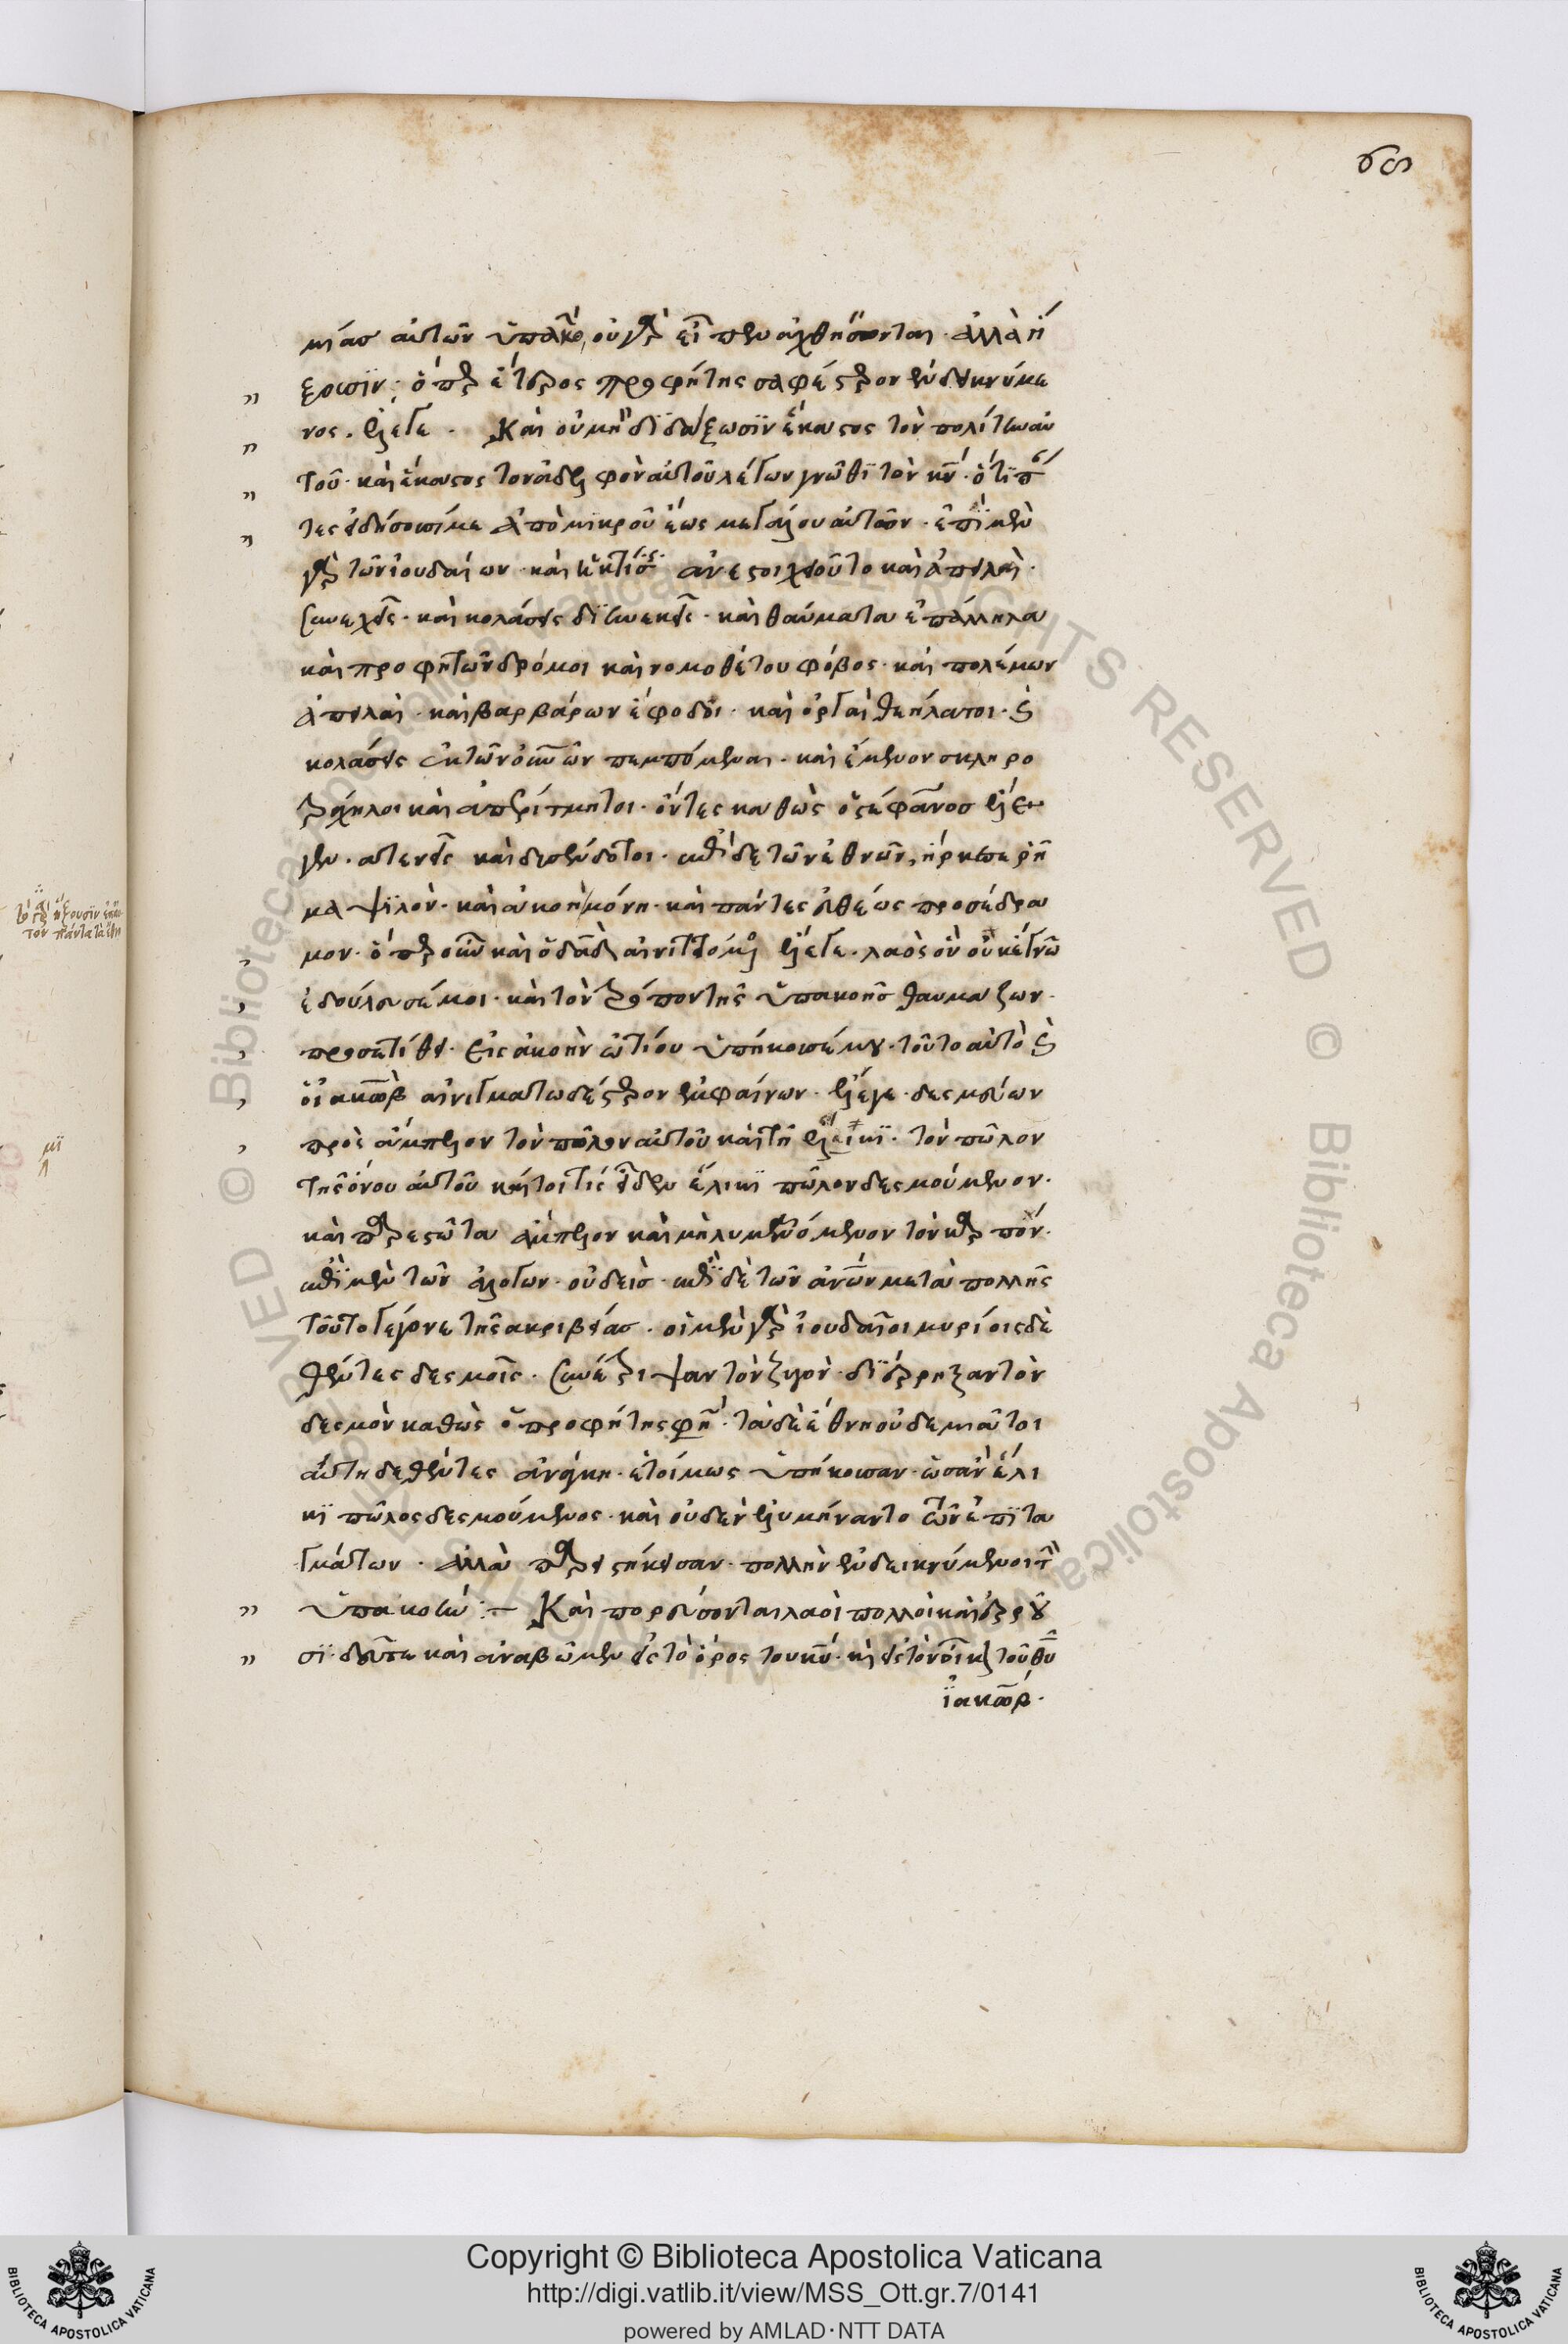 69
μίας αὐτῶν ὑπακο, οὐ γὰρ εἶπεν ἀχθήσονται· ἀλλὰ ἥ
ξουσϊν· ὅπερ ἕτερος προφήτης σαφέστερον ἐνδεικνύμε
νος. ἔλεγε. Καὶ οὐ μὴ δϊδάξωσϊν ἕκαστος τὸν πολίτην αὐ
τοῦ· καὶ ἕκαστος τὸν ἀδελφὸν αὐτοῦ λέγων γνῶθϊ τὸν κν· ὅτϊ π
τες εἰδήσουσί με ἀπὸ μϊκροῦ ἕως μεγάλου αὐτῶν· ἐπὶ μὲν
γὰρ τῶν ἰουδαίων· καὶ ἡ κτίσις ἀνεστοιχειοῦτο καὶ ἀπειλαὶ·
συνεχεῖς· καὶ κολάσεις δϊηνεκεῖς· καὶ θαύματα ἐπάλληλα
καὶ προφητῶν δρόμοι καὶ νομοθέτου φόβος· καὶ πολέμων
ἀπειλαὶ· καὶ βαρβάρων ἔφοδοι· καὶ ὀργαὶ θεήλατοι· καὶ
κολάσεις ἐκ τῶν οὐνῶν πεμπόμεναι· καὶ ἔμενον σκληρο
τράχηλοι καὶ ἀπερίτμητοι· ὄντες καθὼς ὁ στέφανος ἔλε
γεν· ἀτενεῖς καὶ δυσένδοτοι· ἐπὶ δὲ τῶν ἐθνῶν, ἤρκεσε ῥῆ
μα ψϊλὸν· καὶ ἀκοὴ μόνη· καὶ πάντες εὐθέως προσέδρα
μον· ὅπερ οὖν καὶ ὁ δαδ αἰνιττόμενος ἔλεγε· λαὸς ὃν οὐκ ἔγνω
ἐδούλευσέ μοι· καὶ τὸν τρόπον τῆς ὑπακοῆς θαυμάζων·
προσετίθει· εἰς ἀκοὴν ὠτίου ὑπήκουσέ μου· τοῦτο αὐτὸ καὶ
ὁ ἰακὼβ αἰνιγματωδέστερον ἐμφαίνων· ἔλεγε· δεσμεύων
πρὸς ἄμπελον τὸν πῶλον αὐτοῦ καὶ τῇ ἕλικϊ· τὸν πῶλον
τῆς ὄνου αὐτοῦ καίτοι τίς εἶδεν ἕλικϊ πῶλον δεσμούμενον·
καὶ παρεστῶτα ἀμπελον καὶ μὴ λυμαινόμενον τὸν καρπόν·
ἐπὶ μὲν τῶν ἀλόγων· οὐδεὶς· ἐπὶ δὲ τῶν ἀνων μετὰ πολλῆς
τοῦτο γέγονε τῆς ἀκριβείας· οἱ μὲν γὰρ ἰουδαῖοι μυρίοις δε
θέντες δεσμοῖς· συνέτριψαν τὸν ζυγὸν· δϊέρρηξαν τὸν
δεσμὸν καθὼς ὁ προφήτης φη· τὰ δὲ ἔθνη οὐδεμιᾷ τοι
αύτη δεθέντες ἀνάγκη· ἑτοίμως ὑπήκουσαν· ὡσὰν ἕλι
κϊ πῶλος δεσμούμενος· καὶ οὐδὲν ἐλυμήναντο τῶν ἐπϊτα
γμάτων· ἀλλὰ παρειστήκεισαν· πολλὴν ἐνδεικνύμενοι τὴν
ὑπακοήν :– Καὶ πορεύσονται λαοὶ πολλοὶ καὶ ἐροῦ
σϊ· δεῦτε καὶ ἀναβῶμεν εἰς τὸ ὄρος του κυ· καὶ εἰς τὸν οἶκον τοῦ θυ
ϊακὼβ·
μϊ
Copyright © Biblioteca Apostolica Vaticana
http://digi.vatlib.it/view/MSS_Ott.gr.7/0141
powered by AMLAD·NTT DATA
BIBLIOTECA APOSTOLICA VATICANA
BIBLIOTECA APOSTOLICA VATICANA